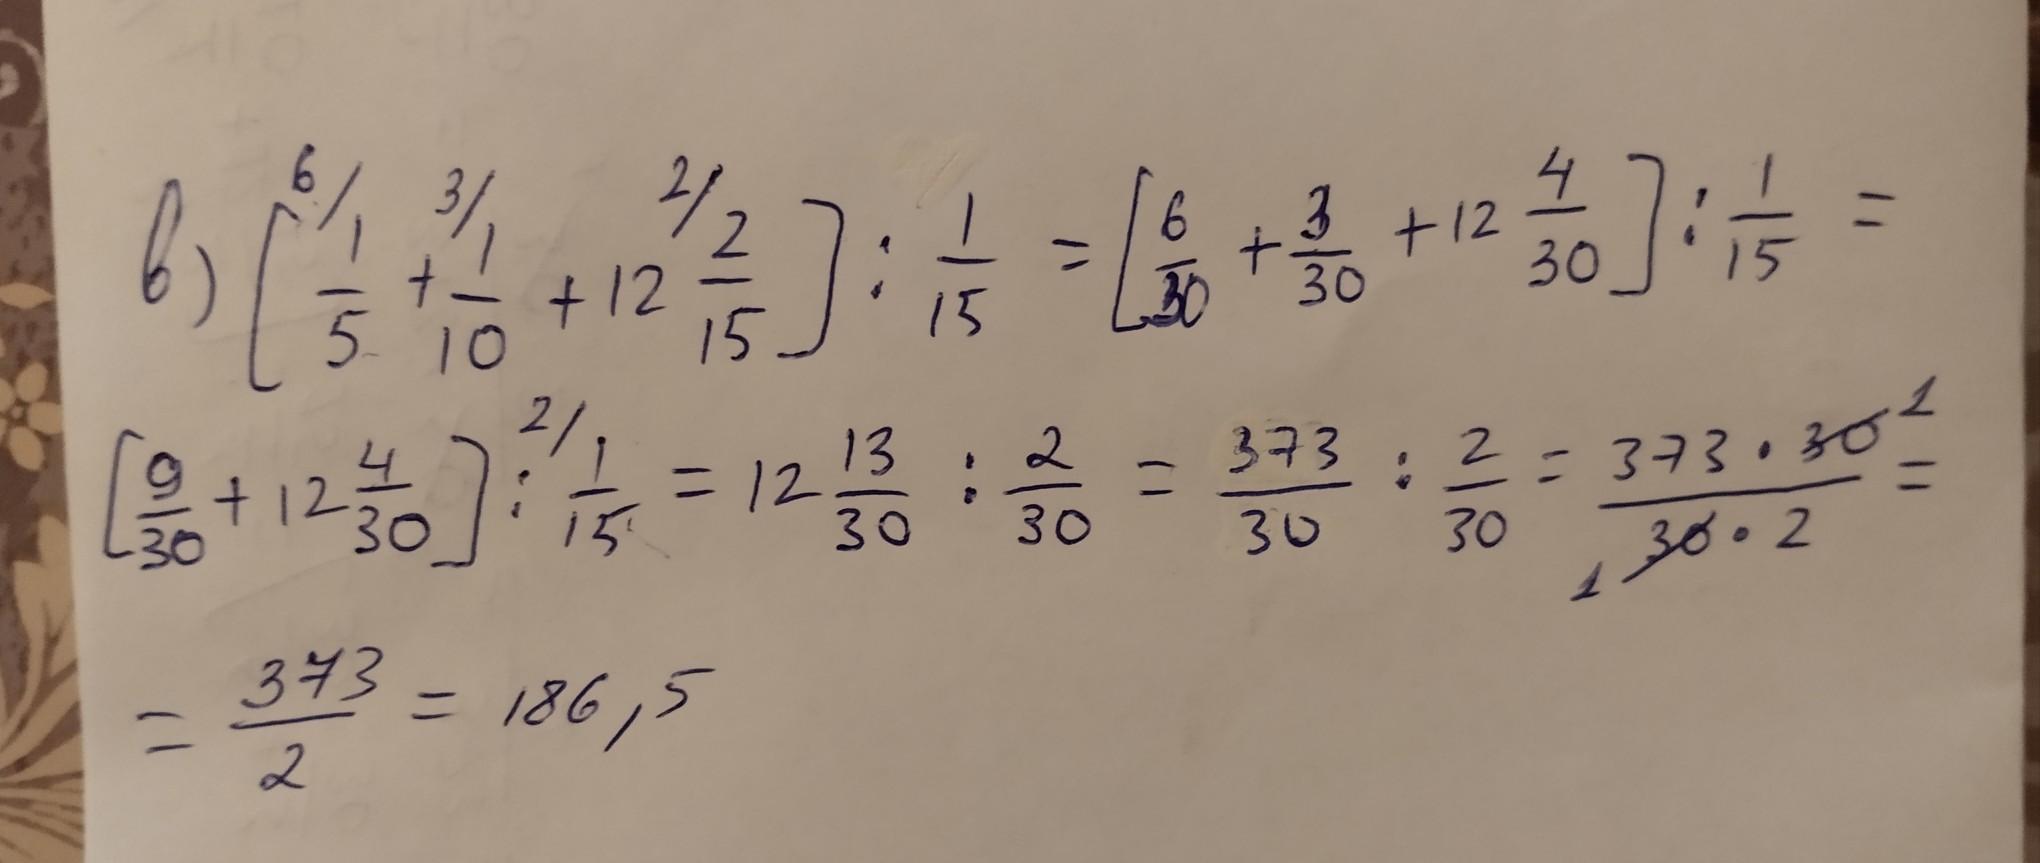 в) [ 6/ 1/5 + 3/ 1/10 + 12 2/ 2/15 ] : 1/15 = [ 6/30 + 3/30 + 12 4/30 ] : 1/15 =
[ 9/30 + 12 4/30 ] : 2/ 1/15 = 12 13/30 : 2/30 = 373/30 : 2/30 = 373 · 30 1 / 1 30 · 2 =
= 373/2 = 186,5